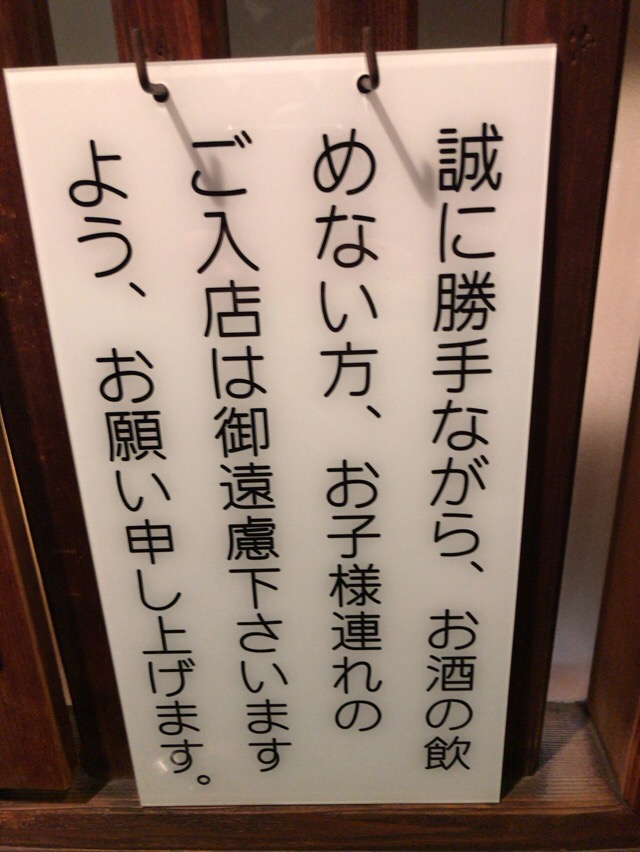 誠に勝手ながら、お酒の飲
めない方、お子様連れの
ご入店は御遠慮下さいます
よう、お願い申し上げます。